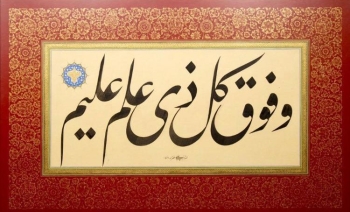 وفوق كل ذی علم علیم